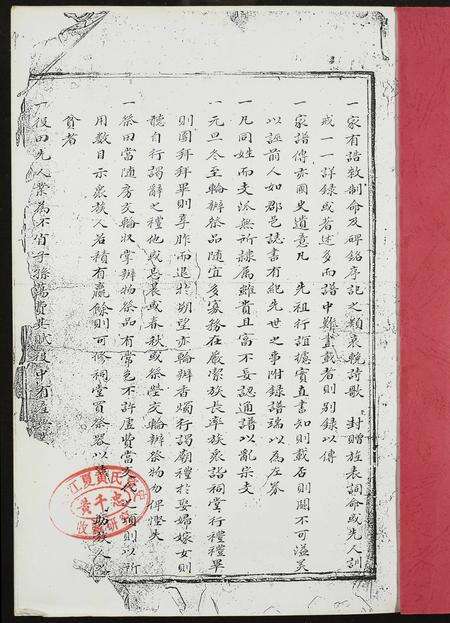 一家有誥敕制命及碑銘序記之類哀輓詩歌 封贈旌表詞命或先人訓
戒一一詳錄或著述多而譜中難盡載者則別錄以傳
一家譜傳亦國史遺意凡 先祖行誼德實直書知則載否則闕不可溢美
以誣前人如郡邑誌書有紀先世之事附錄譜端以為左券
一凡同姓而支派無所隸屬雖貴且富不妄認通譜以亂宗支
一元旦冬至輪辦祭品隨宜多寡務在嚴潔族長率族眾詣祠堂行禮禮畢
則團拜拜畢則享胙而退於朔望亦輪辦香燭行謁廟禮於娶婦嫁女則
聽自行謁辭之禮他或忌晨或春秋或祭塋交輪辦祭物勿得慳失
一祭田當隨房交輪收掌辦物祭品有常色不許虛費當交之類則以所
用數目示眾族人若積有贏餘則可修祠堂百祭器以助族人
貧者
一役田先人業為不肖子孫蕩費其賦役中有
江夏黃氏
黃千志
收藏研